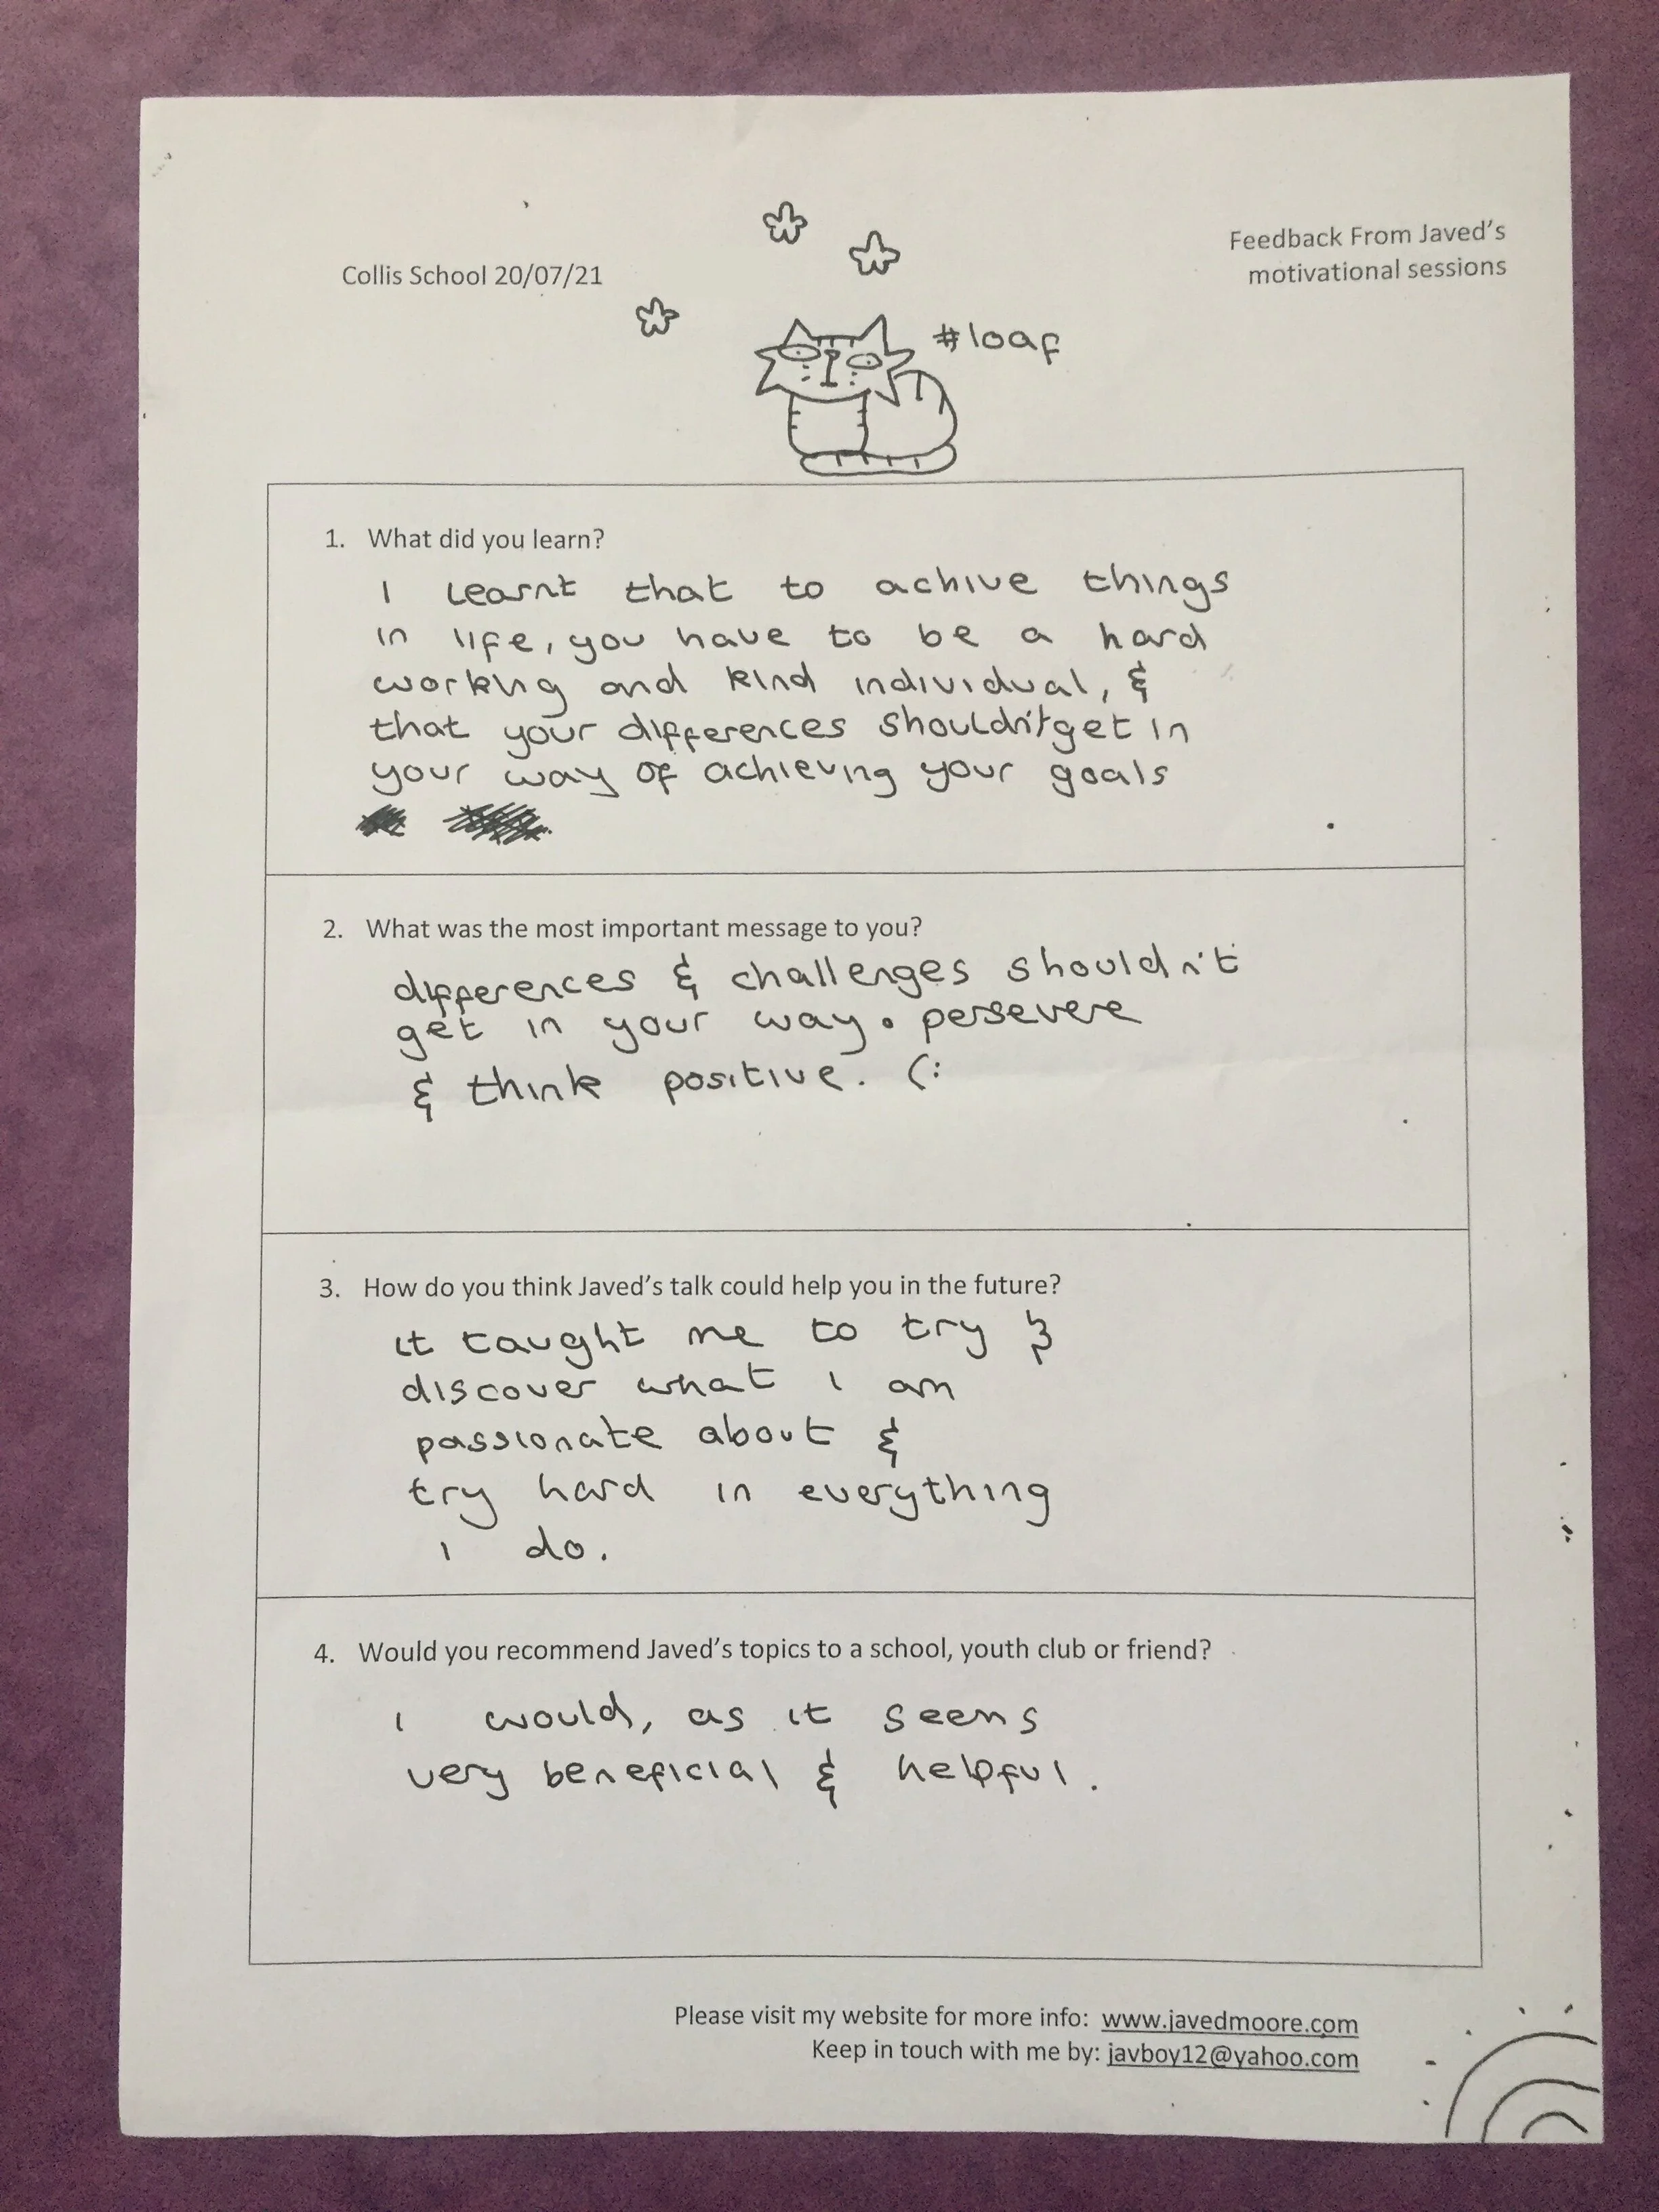 Collis School 20/07/21
Feedback From Javed's
motivational sessions
#loaf
1. What did you learn?
I learnt that to achive things
in life, you have to be a hard
working and kind individual, &
that your differences shouldn't get in
your way of achieving your goals
2. What was the most important message to you?
differences & challenges shouldn't
get in your way. persevere
& think positive. (:
3. How do you think Javed's talk could help you in the future?
it taught me to try &
discover what i am
passionate about &
try hard in everything
i do.
4. Would you recommend Javed's topics to a school, youth club or friend?
i would, as it seems
very beneficial & helpful.
Please visit my website for more info: www.javedmoore.com
Keep in touch with me by: javboy12@yahoo.com